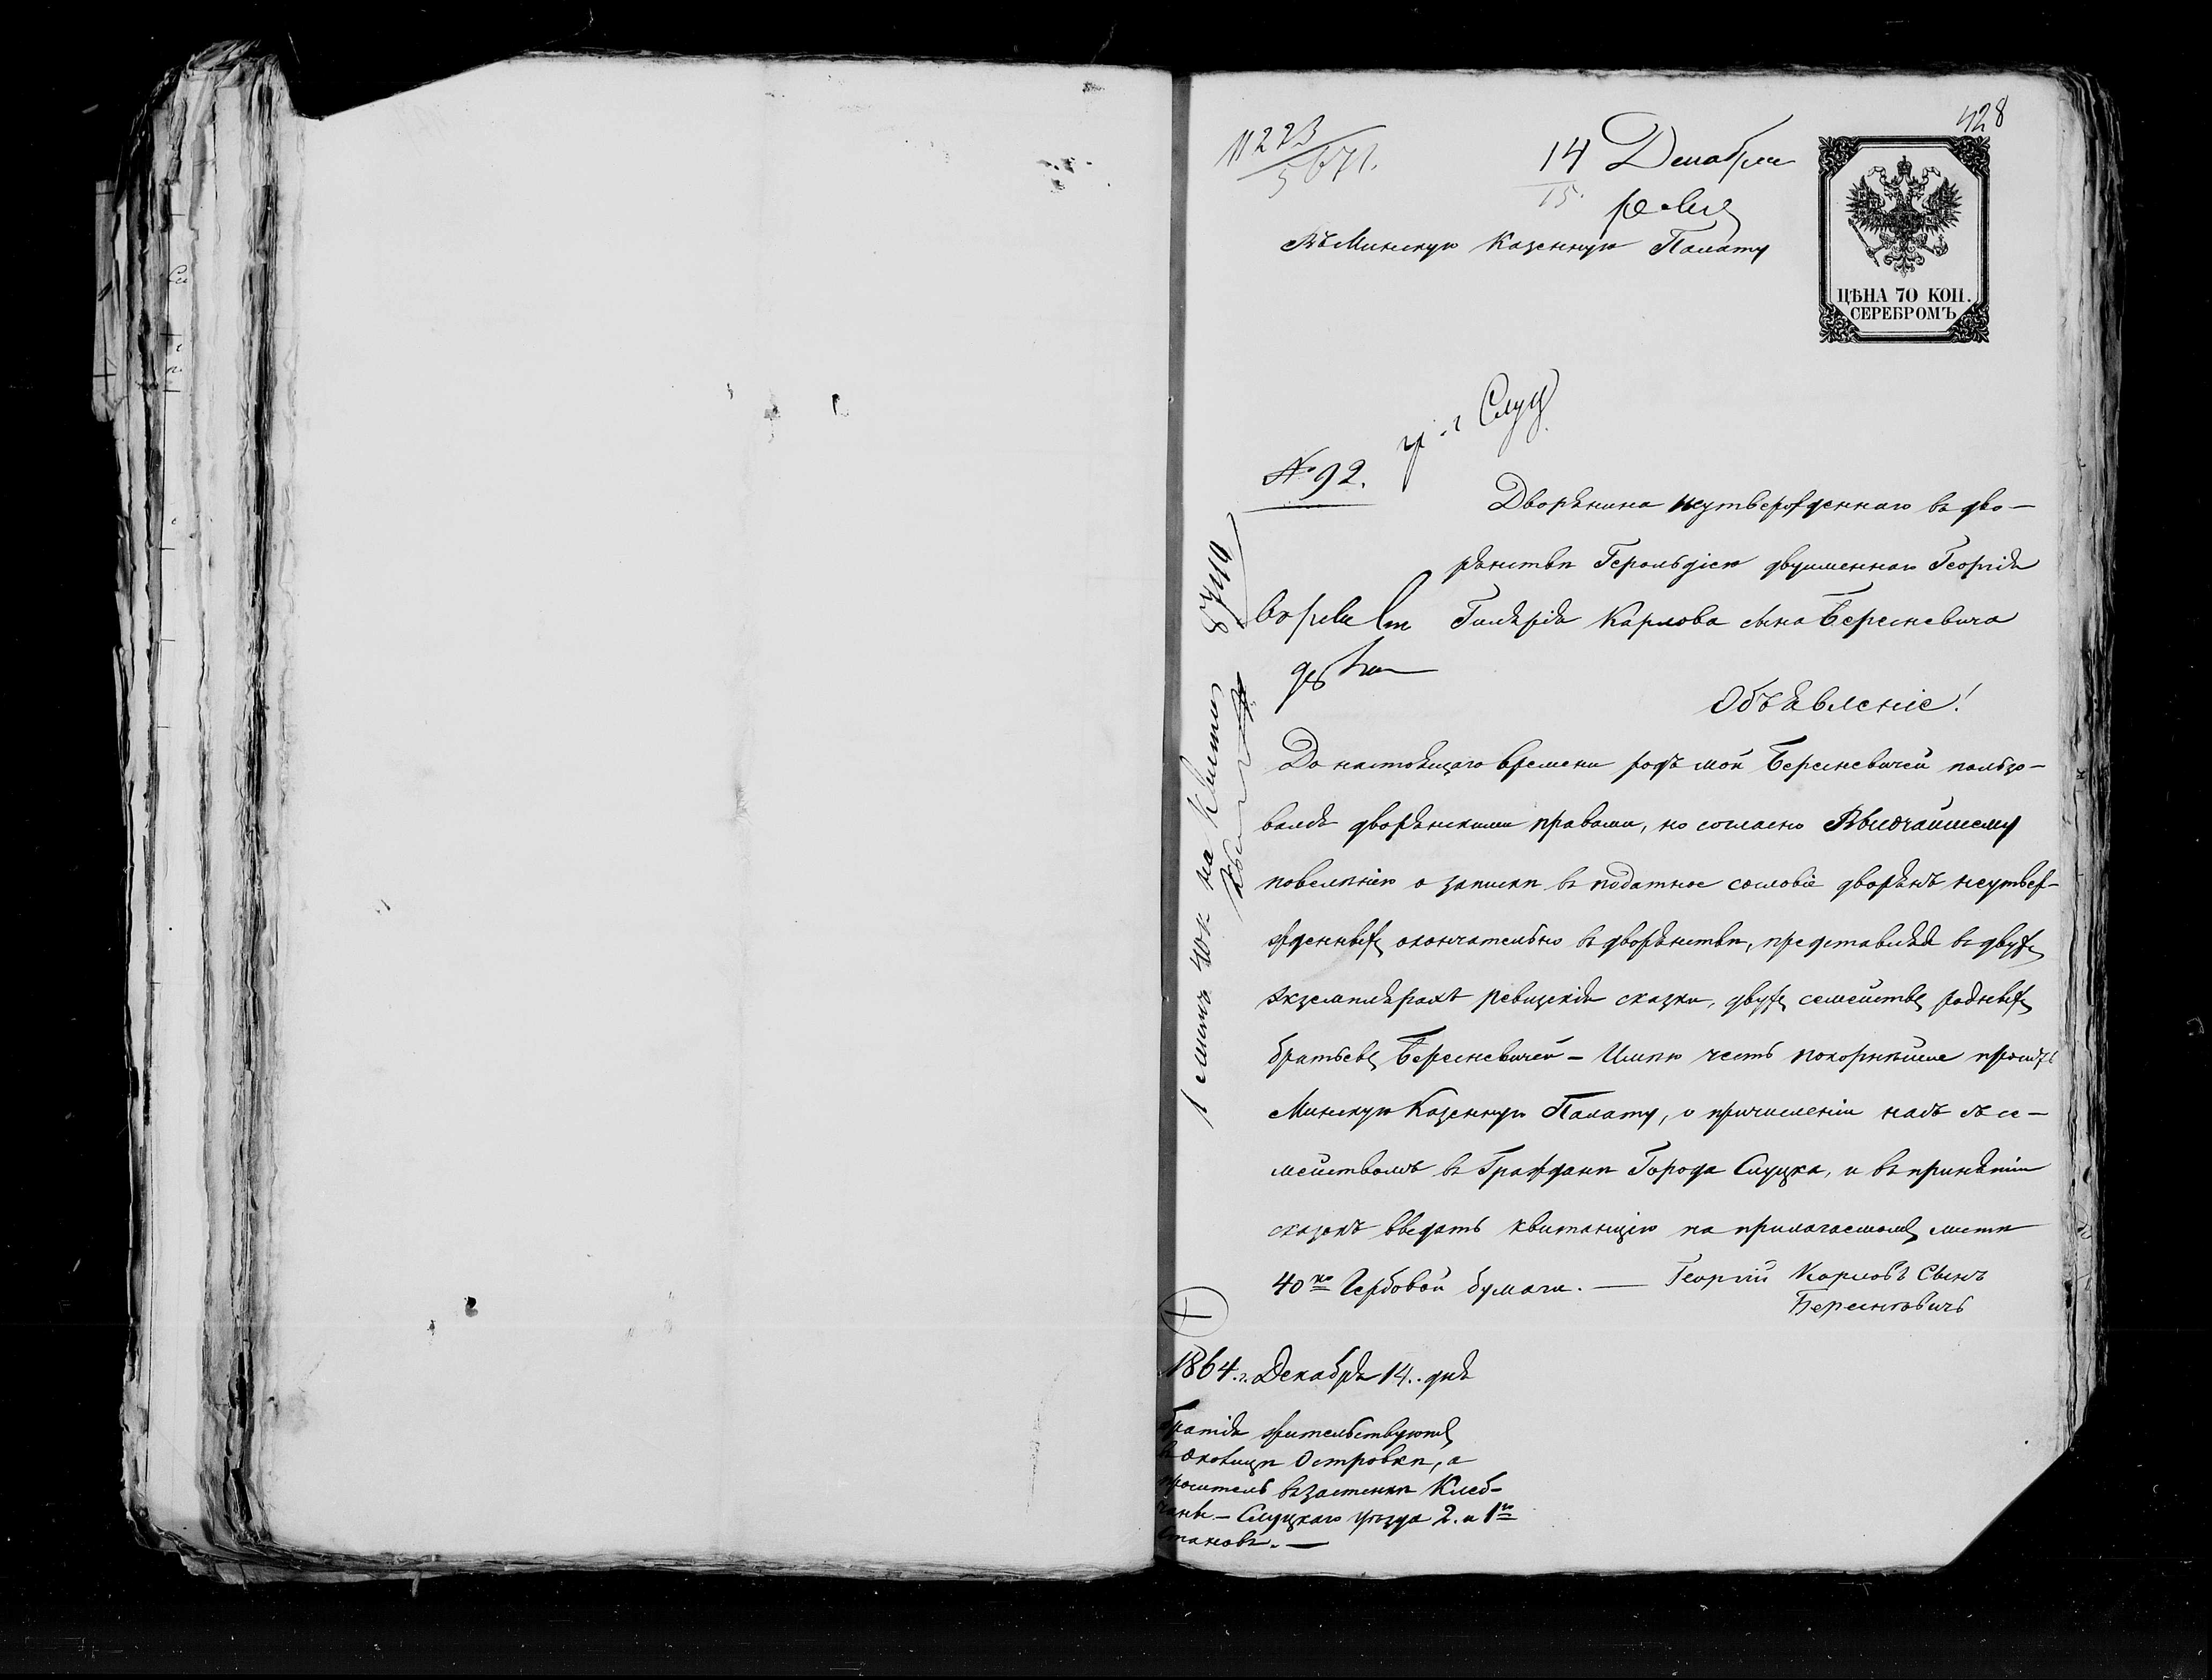 428
11223
5671.
14 Декабря
15.
Въ Минскую Казенную Палату
ЦѢНА 70 КОП.
СЕРЕБРОМЪ
г. Слуц
№ 92.
Дворянина неутвержденнаго въ дво-
рянствѣ Герольдіею двуименнаго Георгія
Гилярія Карлова сына Бересневича
Объявленіе!
До настоящаго времени родъ мой Бересневичей пользо-
вался дворянскими правами, но согласно Высочайшему
повелѣнію о запискѣ въ податное сословіе дворянъ неутвер-
жденныхъ окончательно въ дворянствѣ, представляя въ двухъ
экземплярахъ ревизскія сказки, двухъ семействъ родныхъ
братьевъ Бересневичей – Имѣю честь покорнѣйше просить
Минскую Казенную Палату, о причисленіи насъ съ се-
мействомъ въ Граждане Города Слуцка, и въ принятіи
сказокъ выдать квитанцію на прилагаемомъ листѣ
40 ко Гербовой бумаги. — Георгій Карловъ Сынъ
Бересневичъ
1864. г. Декабря 14. дня
Братія жительствуютъ
въ Околицѣ Островкѣ, а
проситель въ застенкѣ Клеб-
чаны – Слуцкаго уѣзда 2. и 1го
становъ. —
1 листъ 40 к на
8740